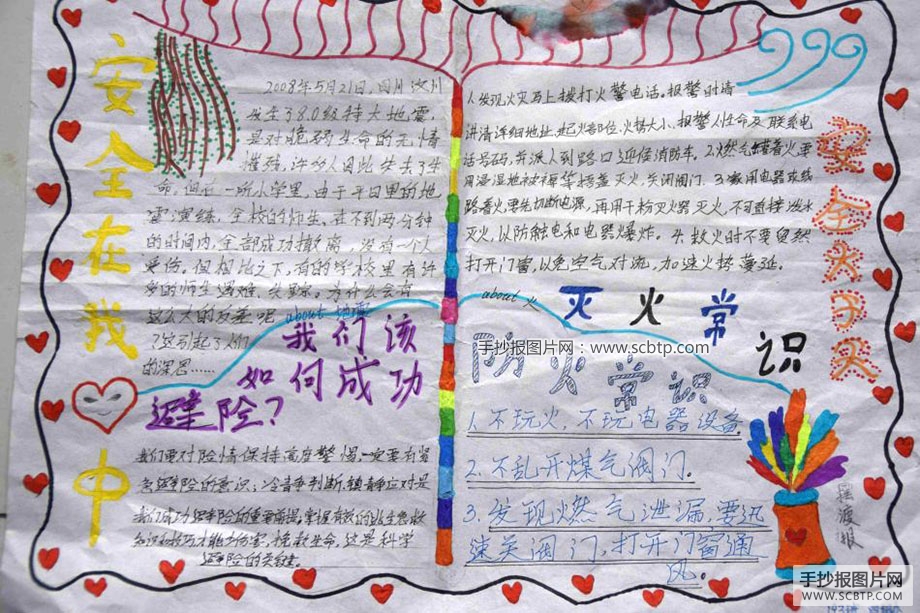 安全在我
中
2008年5月21日,四川汶川
发生了8.0级特大地震,
是对脆弱生命的无情
摧残,许多人因此失去了生
命,但在一所小学里,由于平日里的地
震演练,全校的师生,在不到两分钟
的时间内,全部成功撤离,没有一个人
受伤。但相比之下,有的学校里有许
多的师生遇难、失踪。为什么会有
这么大的反差呢
?这引起了人们
的深思……
about 地震
我们该
如何成功
避险?
我们要对险情保持高度警惕,一定要有紧
急避险的意识;冷静判断,镇静应对是
我们成功避险的重要前提,掌握有效的逃生急救
知识和技巧才能少伤害,挽救生命,这是科学
避险的关键。
1.发现火灾马上拨打火警电话。报警时请
讲清详细地址、起火部位、火势大小、报警人姓命及联系电
话号码,并派人到路口迎侯消防车。2.燃气罐着火要
用浸湿地被褥等捂盖灭火,关闭阀门。3.家用电器或线
路着火要先切断电源,再用干粉灭火器灭火,不可直接泼水
灭火,以防触电和电器爆炸。4.救火时不要贸然
打开门窗,以免空气对流,加速火势蔓延。
安全
about 火
灭火常识
手抄报图片网:www.scbtp.com
防火常识
1.不玩火,不玩电器设备.
2.不乱开煤气阀门.
3.发现燃气泄漏,要迅
速关阀门,打开门窗通
风.
手抄报图片网
WWW.SCBTP.COM